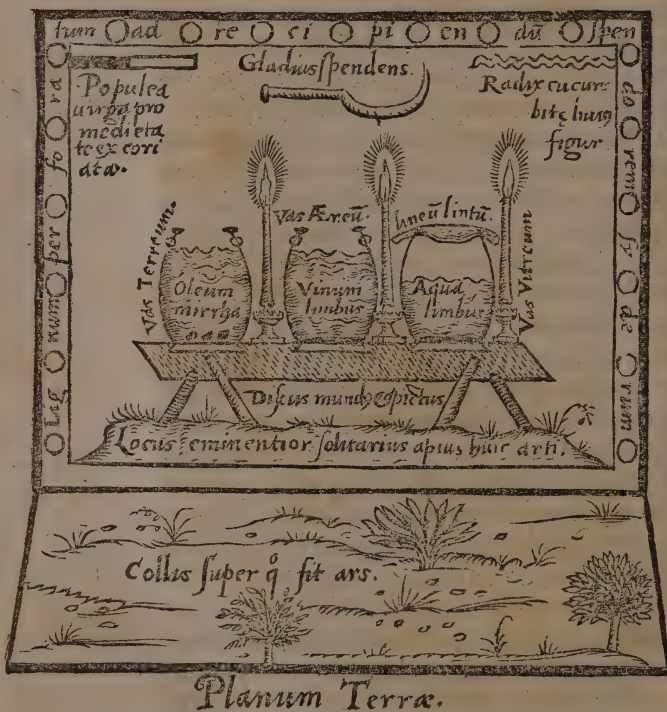 Lig num per fo ra
tum ad re ci pi en dū ſpen
do rem ſy de rum
Populea
uirga pro
medieta
te ex cori
ata.
Gladiusſpendens.
Radix cucur:
bitę huiꝰ
figur
Vas Terreum.
Vas Æreū.
lineū lintū.
Vas Vitreum
Oleum
mirrha
Vinum
limbus
Aqua
limbus
Diſcus mundꝰ & pictus
Locus eminentior ſolitarius aptus huic arti.
Collis ſuper qͦ fit ars.
Planum Terræ.